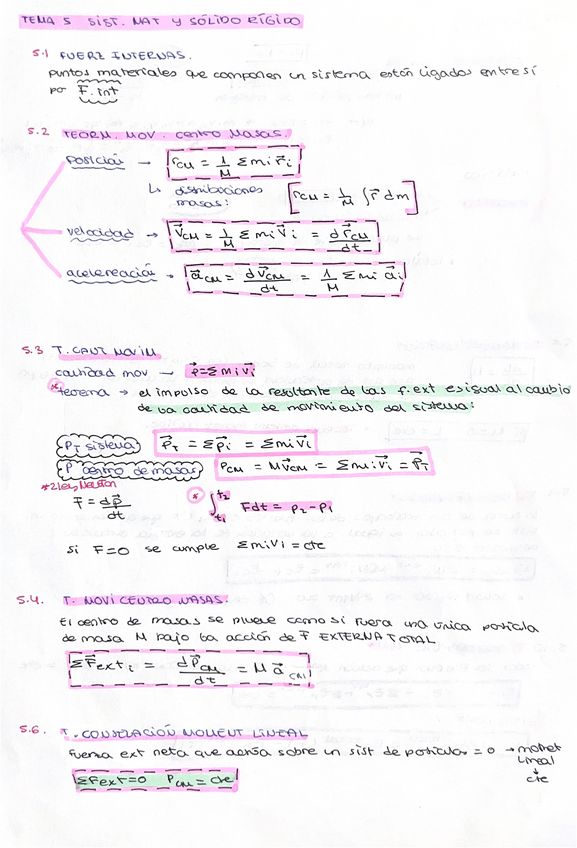 TEMA 5 SIST. MAT Y SÓLIDO RÍGIDO
5.1 FUERZ INTERNAS.
puntos materiales que componen un sistema están ligados entre sí
por F.int
5.2 TEORM. MOV. centro Masas.
posición → r_CM = 1/M Σ mi r⃗i
↳ distribuciones masas: r_CM = 1/M ∫ r⃗ dm
velocidad → V⃗_CM = 1/M Σ mi V⃗i = dr⃗_CM/dt
acelereación → a⃗_CM = dv⃗_CM/dt = 1/M Σ mi a⃗i
5.3 T. CANT MOVIM
cantidad mov → p⃗=Σmivi
* teorema → el impulso de la resultante de las f.ext es igual al cambio
de la cantidad de movimiento del sistema:
P_T sistema P⃗_T = Σp⃗i = Σmiv⃗i
P centro de masas P_CM = Mv⃗_CM = Σmiv⃗i = P⃗_T
*2 ley Newton
F̄ = dp⃗/dt * ∫_t1^t2 Fdt = p2 - p1
si F=0 se cumple Σmivi = cte
5.4. T. MOVI CENTRO MASAS.
El centro de masas se mueve como si fuera una única partícula
de masa M bajo la acción de F̄ EXTERNA TOTAL
ΣF⃗ext i = dP⃗_CM/dt = M a⃗_CM
5.6. T. CONSERACIÓN MOMENT LINEAL
Fuerza ext neta que actúa sobre un sist de partículas = 0 → momet
Lineal
↓
cte
ΣFext=0 P_CM = cte